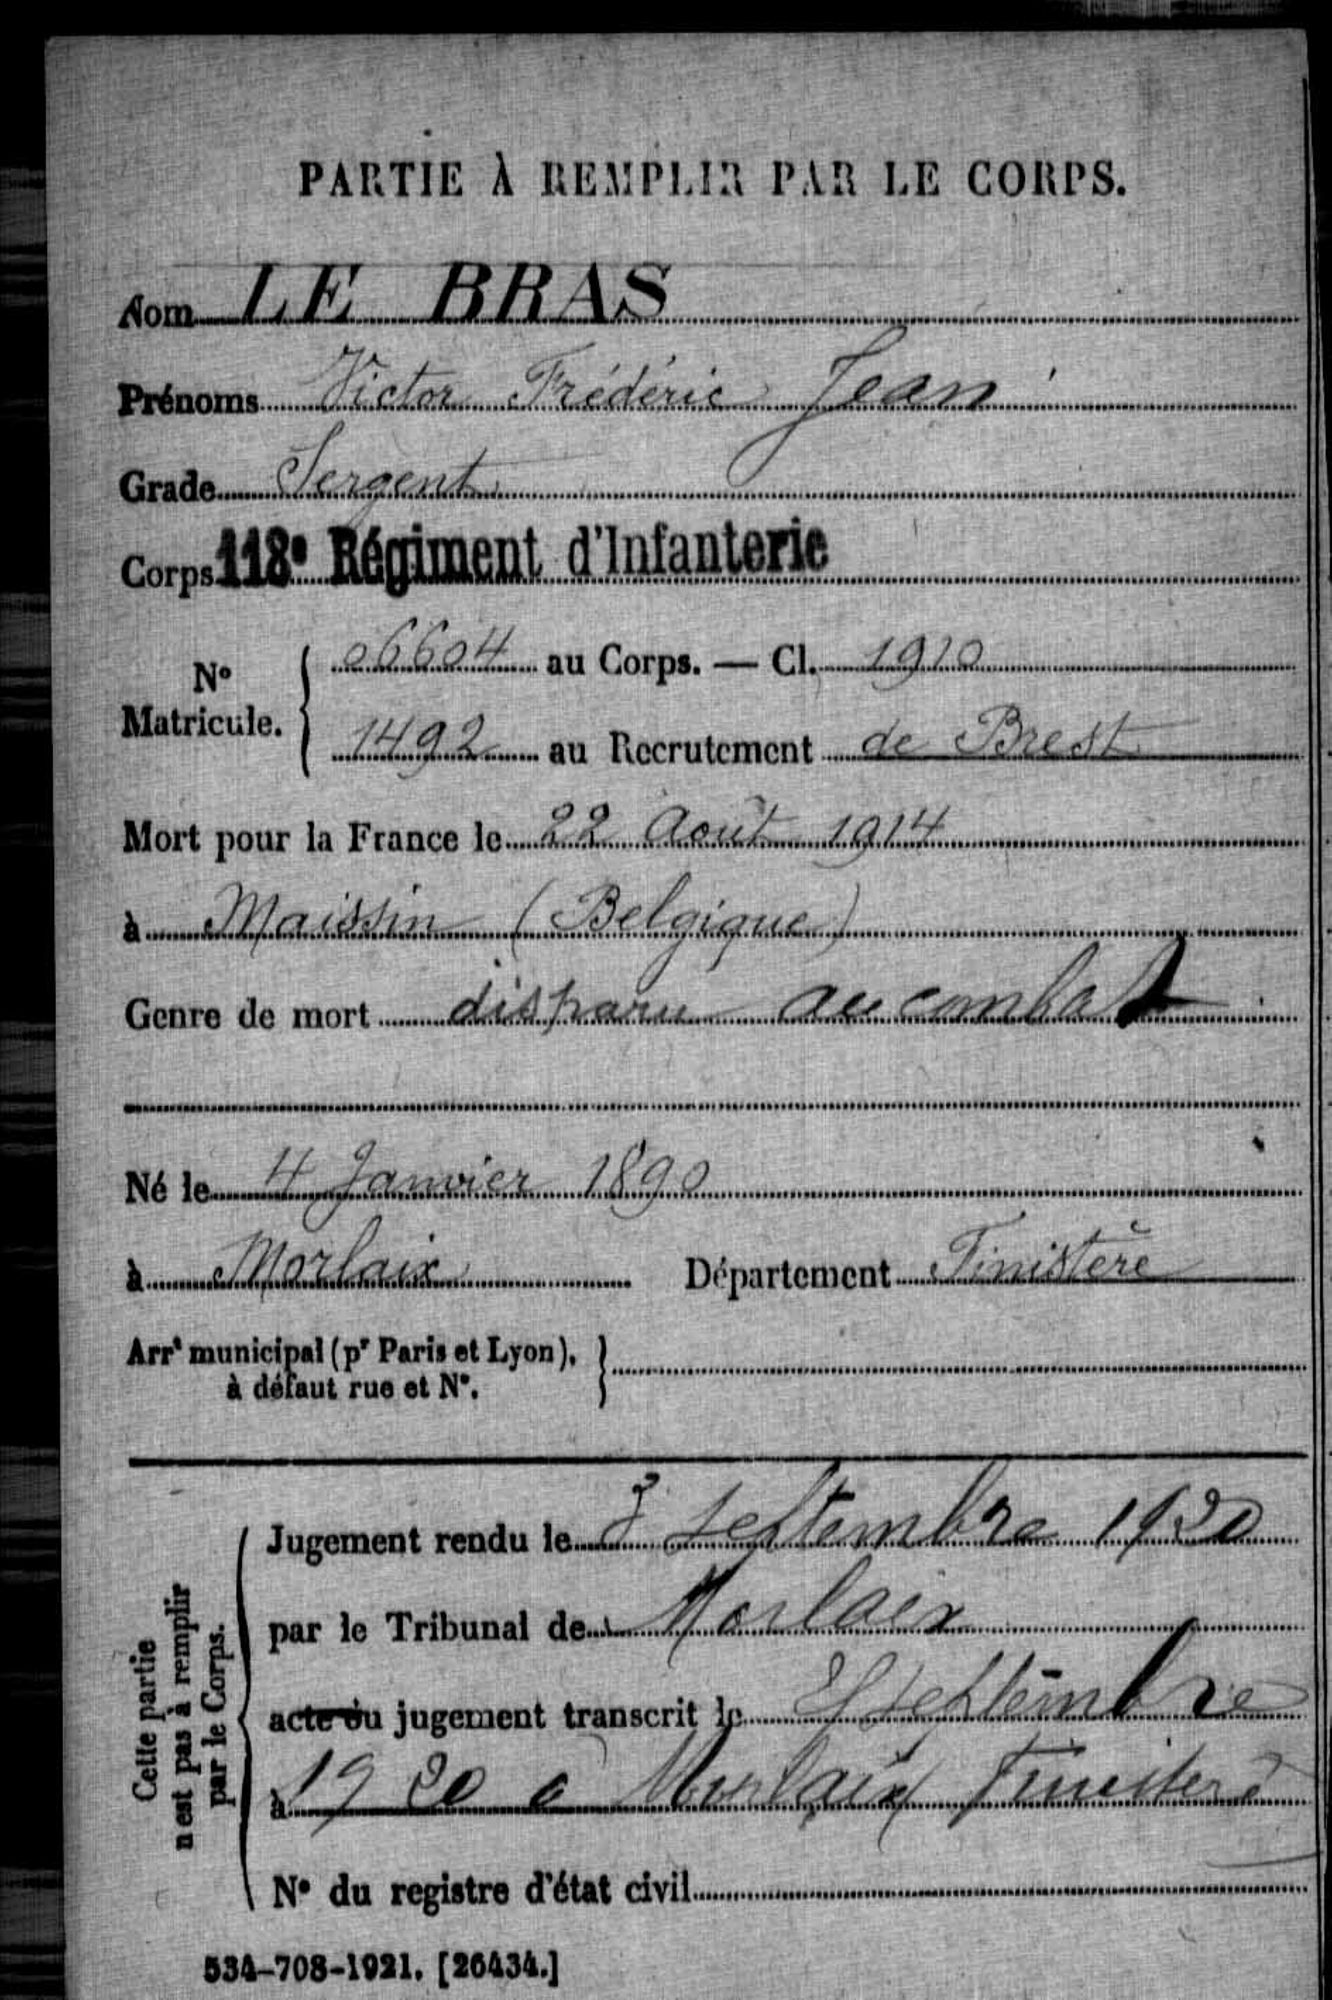 PARTIE À REMPLIR PAR LE CORPS.
Nom LE BRAS
Prénoms Victor Frédéric Jean
Grade Sergent
Corps 118e Régiment d'Infanterie
No Matricule. { 06604 au Corps. — Cl. 1910
1492 au Recrutement de Brest
Mort pour la France le 22 Août 1914
à Maissin (Belgique)
Genre de mort disparu au combat
Né le 4 Janvier 1890
à Morlaix Département Finistère
Arrt municipal (pr Paris et Lyon),
à défaut rue et No.
Cette partie
n'est pas à remplir
par le Corps.
Jugement rendu le 3 septembre 1920
par le Tribunal de Morlaix
acte ou jugement transcrit le septembre
à 1920 a Morlaix Finistere
No du registre d'état civil
534-708-1921. [26434.]